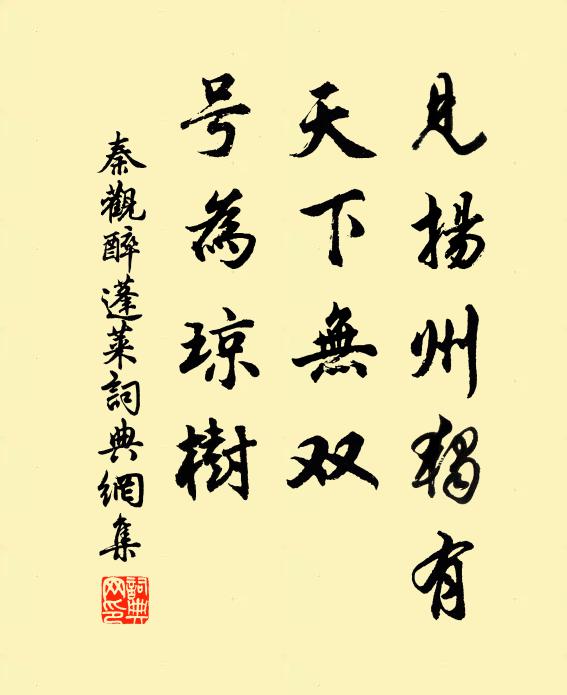 見揚州獨有
天下無双
号為琼樹
秦觀醉蓬萊詞典網集
詞典網印